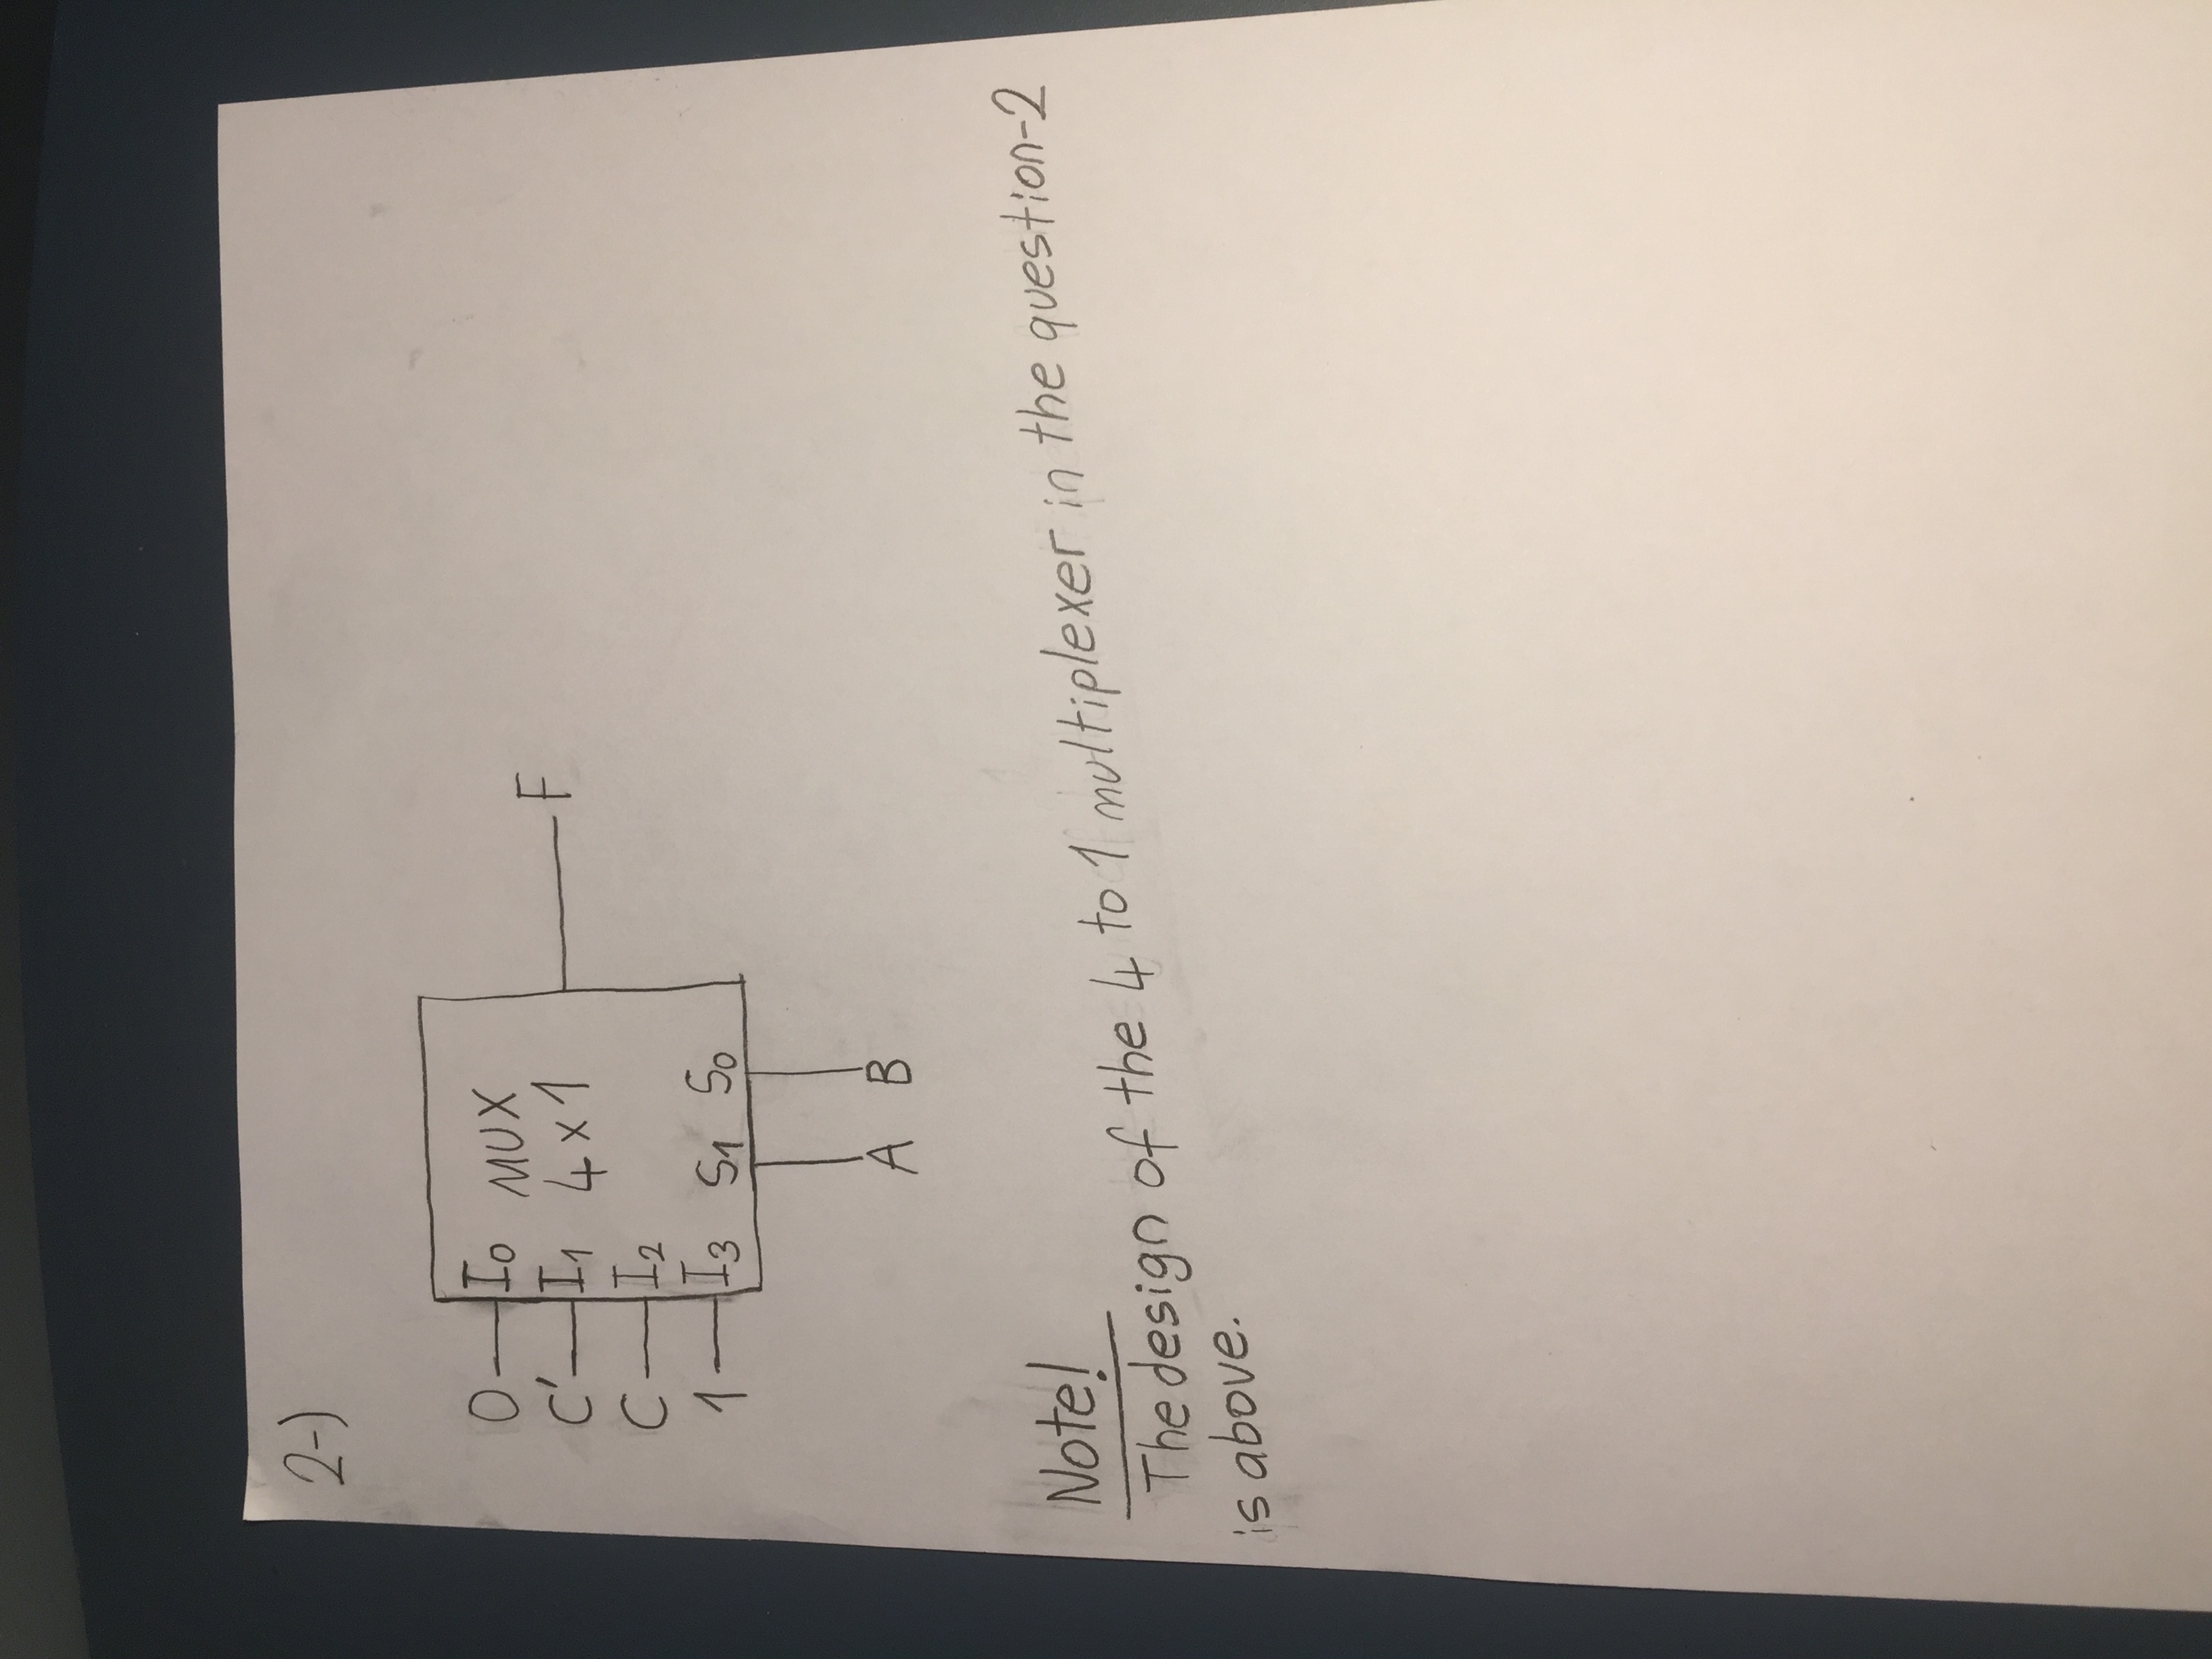 2-)
0 I0 MUX
C' I1 4x1 F
C I2
1 I3 S1 S0
A B
Note!
The design of the 4 to 1 multiplexer in the question-2
is above.